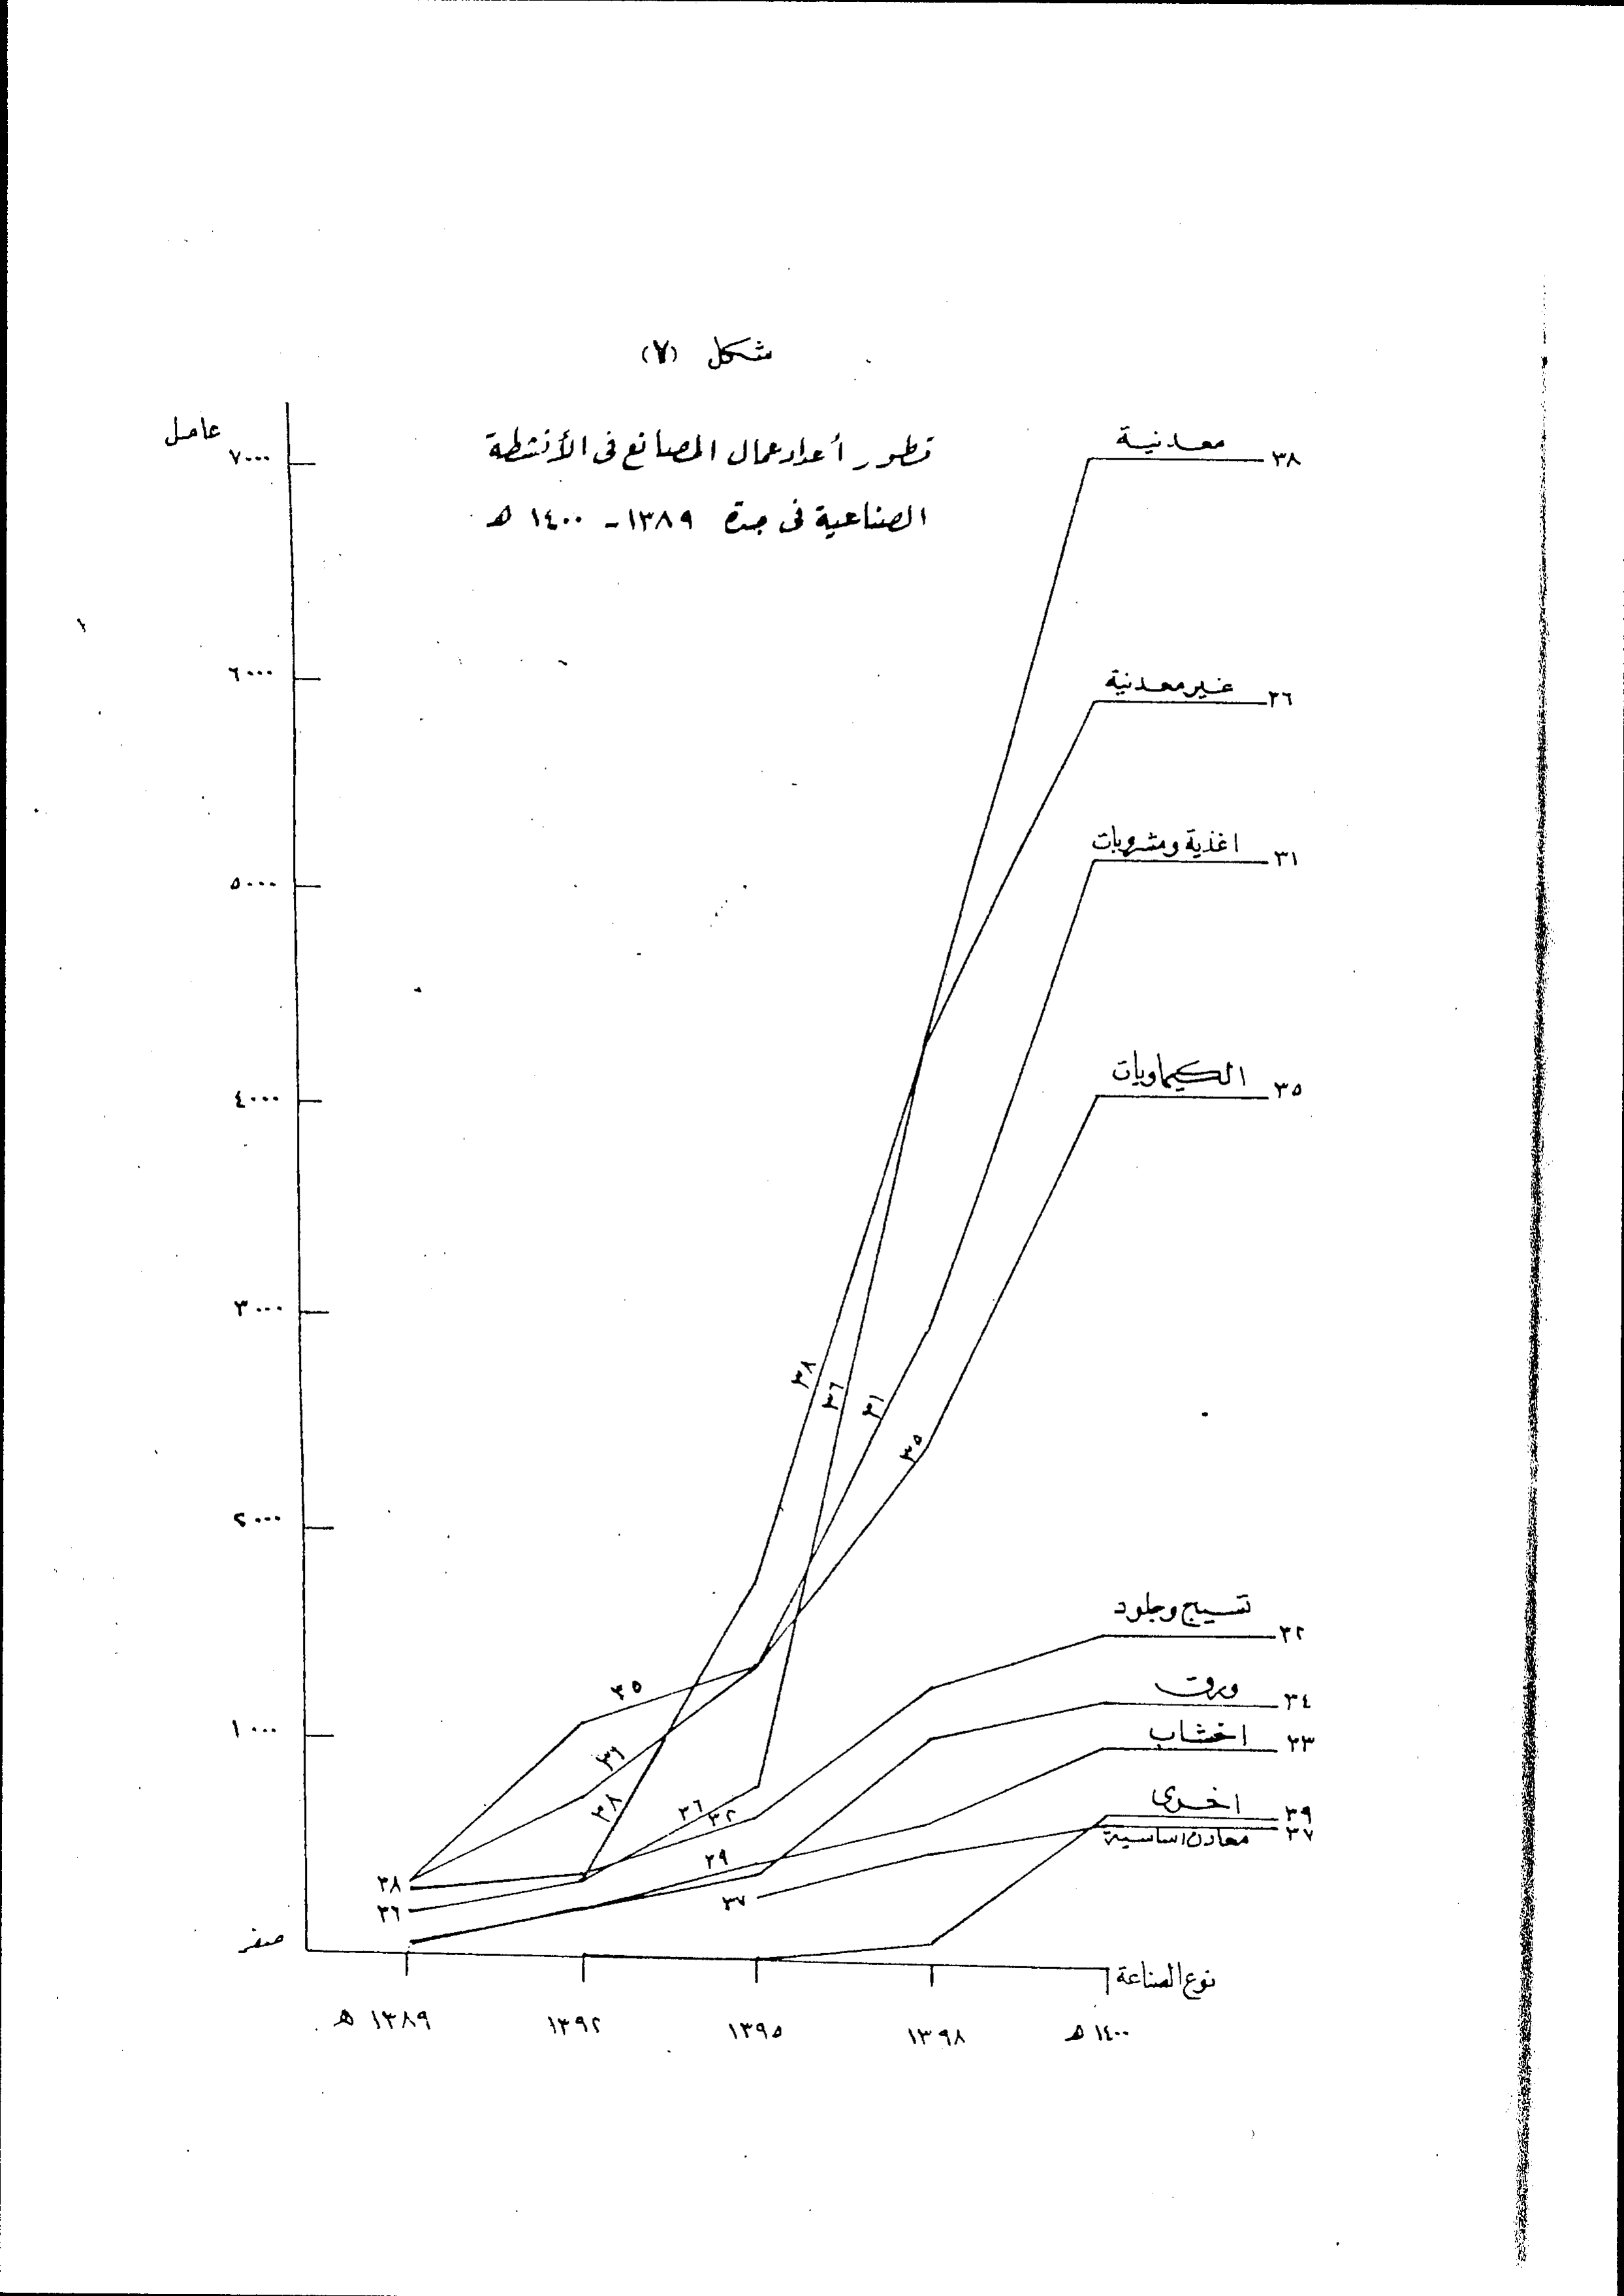 شكل (٧)
تطور أعداد عمال المصانع فى الأنشطة
الصناعية فى جدة ١٣٨٩ - ١٤٠٠ هـ
عامل
٧٠٠٠
٦٠٠٠
٥٠٠٠
٤٠٠٠
٣٠٠٠
٢٠٠٠
١٠٠٠
صفر
معدنية ٣٨
غير معدنية ٣٦
اغذية ومشروبات ٣١
الكيماويات ٣٥
نسيج وجلود ٣٢
ورق ٣٤
اخشاب ٣٣
اخرى ٣٩
معادن اساسية ٣٧
٣٨
٣٦
٣١
٣٥
٣٥
٣١
٣٨
٣٦
٣٢
٣٩
٣٧
٣٨
٣٦
نوع الصناعة
١٣٨٩ هـ
١٣٩٢
١٣٩٥
١٣٩٨
١٤٠٠ هـ